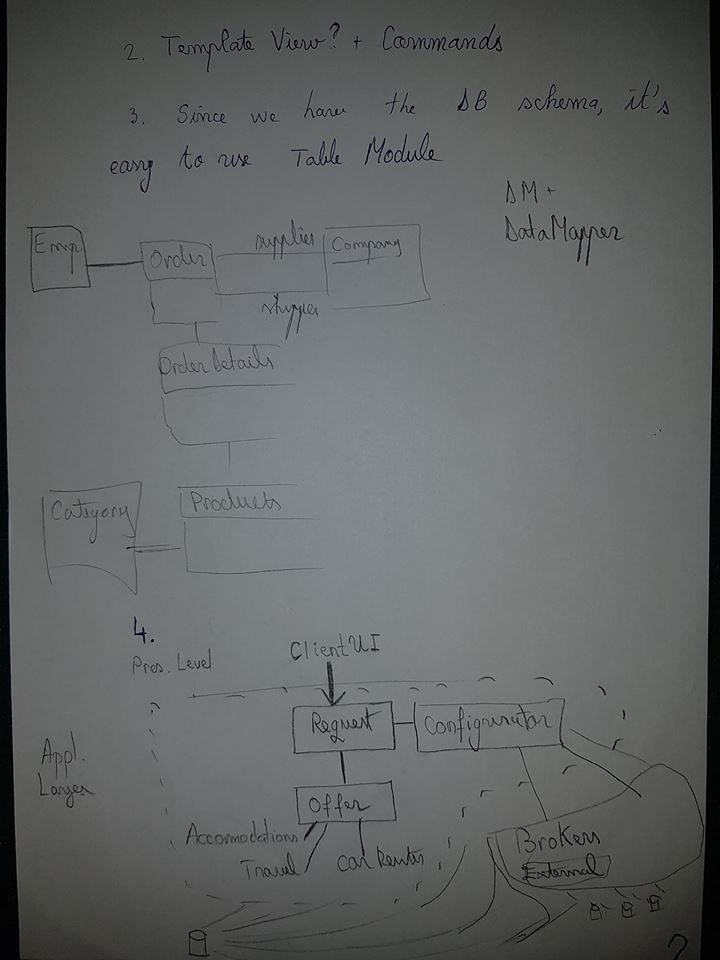 2. Template View? + Commands
3. Since we have the DB schema, it's
easy to use Table Module
DM +
DataMapper
Emp
Order
supplier
Company
shypper
OrderDetails
Category
Products
4.
Pres. Level
ClientUI
Request
Configurator
Appl.
Layer
Offer
Accomodations
Travel
Car Renter
Brokers
External
?